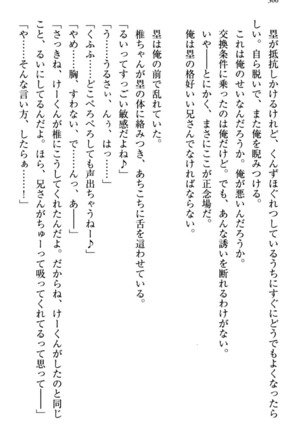 塁が抵抗しかけるけれど、くんずほぐれつしているうちにすぐにどうでもよくなったら
しい。自ら脱いで、また俺を睨みつける。
これは俺のせいなんだろうか。俺が悪いんだろうか。
交換条件に乗ったのは俺だけど。でも、あんな誘いを断れるわけがない。
いや――とにかく、まさにここが正念場だ。
俺は塁の格好いい兄さんでなければならない。
塁は俺の前で乱れていた。
椎ちゃんが塁の体に絡みつき、あちこちに舌を這わせている。
「るいってすっごい敏感だよね♪」
「う……うるさい、んぅ、はっ……」
「くふふ……どこぺろぺろしても声出ちゃうねー♪」
「やめ……胸、すわない、で……んっ、あ――」
「さっきね、けーくんが椎にこうしてくれたんだよ。だからね、けーくんがしたのと同じ
こと、るいにしてるんだよ。ほら、兄さんがちゅーって吸ってくれてるって思って――」
「や……そんな言い方、したらぁ……！」